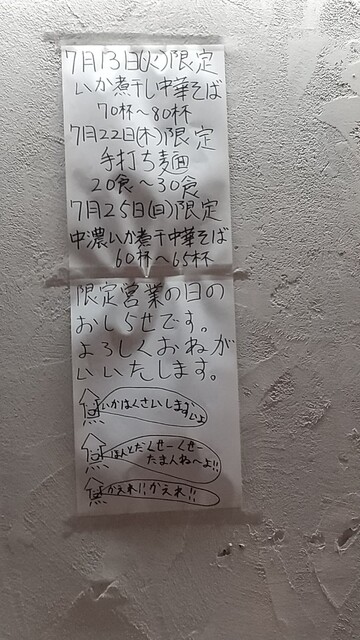 7月13日(火)限定
いか煮干し中華そば
70杯〜80杯
7月22日(木)限定
手打ち麺
20食〜30食
7月25日(日)限定
中濃いか煮干中華そば
60杯〜65杯
限定営業の日の
おしらせです。
よろしくおねが
いいたします。
いかはくさいします
ほんとだくせーくせー
たまんねーよ!!
かえれ!!かえれ!!